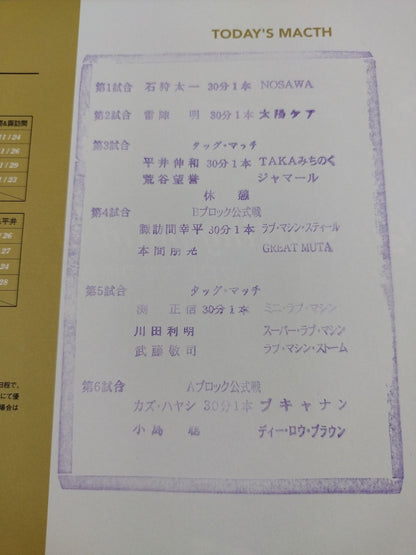 TODAY'S MACTH
第1試合 石狩太一 30分1本 NOSAWA
第2試合 雷陣 明 30分1本 太陽ケア
第3試合 タッグ・マッチ
平井伸和 30分1本 TAKAみちのく
荒谷望誉 ジャマール
休憩
第4試合 Bブロック公式戦
諏訪間幸平 30分1本 ラブ・マシン・スティール
本間朋晃 GREAT MUTA
第5試合 タッグ・マッチ
渕 正信 30分1本 ミニ・ラブ・マシン
川田利明 スーパー・ラブ・マシン
武藤敬司 ラブ・マシン・ストーム
第6試合 Aブロック公式戦
カズ・ハヤシ 30分1本 ブキャナン
小島 聡 ディー・ロウ・ブラウン
&諏訪間
/24
/26
1/29
1/23
平井
/26
/27
/24
/28
日程で、
にて優
場合は